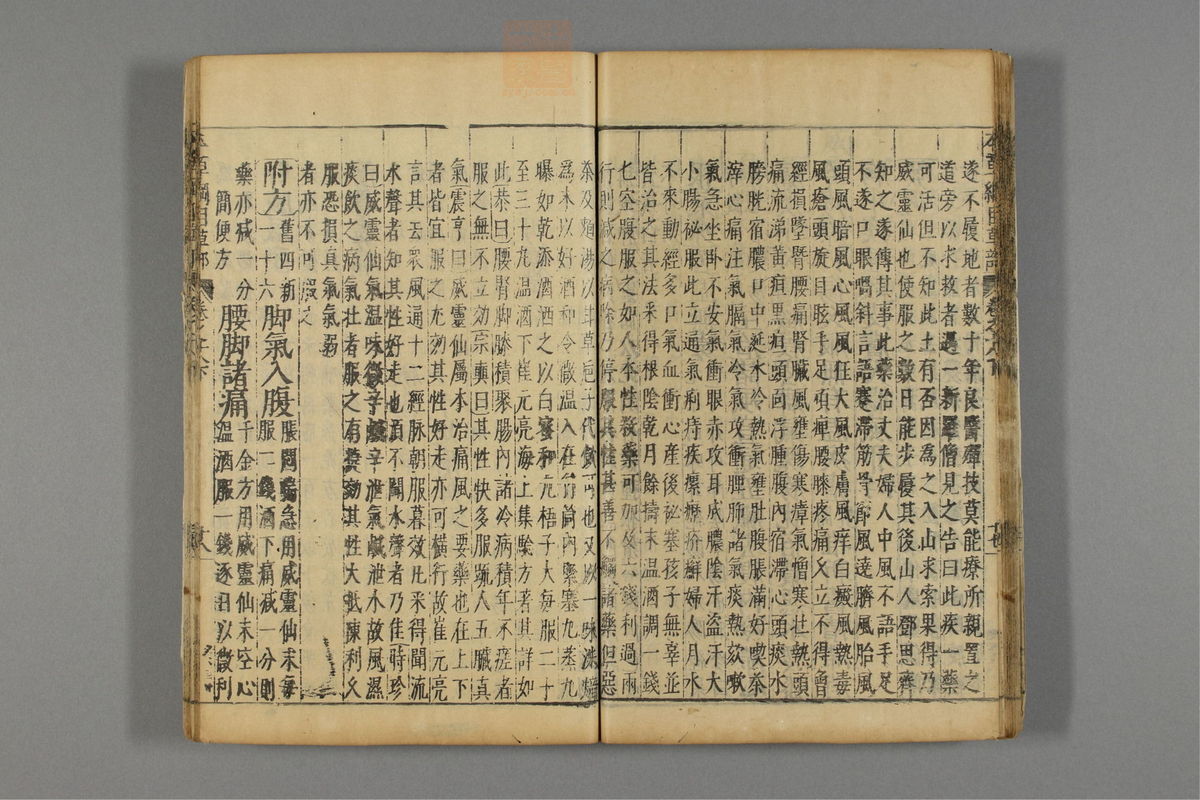 遂不履地者數十年良醫殫技莫能療所親置之
道旁以求救者遇一新羅僧見之告曰此疾一藥
可活但不知此土有否因為之入山求索果得乃
威靈仙也使服之數日能步履其後山人鄧思齊
知之遂傳其事此藥治丈夫婦人中風不語手足
不遂口眼喎斜言語蹇滯筋骨節風遶臍風胎風
頭風暗風心風風狂大風皮膚風痒白癜風熱毒
風瘡頭旋目眩手足頑痺腰膝疼痛久立不得曾
經損墜臂腰痛腎臟風壅傷寒瘴氣憎寒壯熱頭
痛流涕黃疸黑疸頭面浮腫腹內宿滯心頭痰水
膀胱宿膿口中涎水冷熱氣壅肚腹脹滿好喫茶
滓心痛注氣膈氣冷氣攻衝脾肺諸氣痰熱欬嗽
氣急坐卧不安氣衝眼赤攻耳成膿陰汗盜汗大
小腸祕服此立通氣痢痔疾瘰癧疥癬婦人月水
不來動經多日氣血衝心產後祕塞孩子無辜並
皆治之其法采得根陰乾月餘擣末溫酒調一錢
匕空腹服之如人本性殺藥可加及六錢利過兩
行則減之病除乃停服其性甚善不觸諸藥但惡
茶及麪湯以甘草巵子代飲可也又以一味洗焙
為末以好酒和令微濕入在竹筒內緊塞九蒸九
曝如乾添酒洒之以白蜜和丸梧子大每服二十
至三十丸溫酒下崔元亮海上集驗方著其詳如
此恭曰腰腎脚膝積聚腸內諸冷病積年不瘥者
服之無不立效宗奭曰其性快多服疏人五臟真
氣震亨曰威靈仙屬木治痛風之要藥也在上下
者皆宜服之尤効其性好走亦可橫行故崔元亮
言其去衆風通十二經脉朝服暮效凡采得聞流
水聲者知其性好走也須不聞水聲者乃佳時珍
曰威靈仙氣溫味微辛鹹辛泄氣鹹泄水故風濕
痰飲之病氣壯者服之有捷効其性大抵疎利久
服恐損真氣氣弱
者亦不可服之
附方舊四新一十六脚氣入腹脹悶喘急用威靈仙末每服二錢酒下痛減一分則
藥亦减一分簡便方腰脚諸痛千金方用威靈仙末空心溫酒服一錢逐日以微利